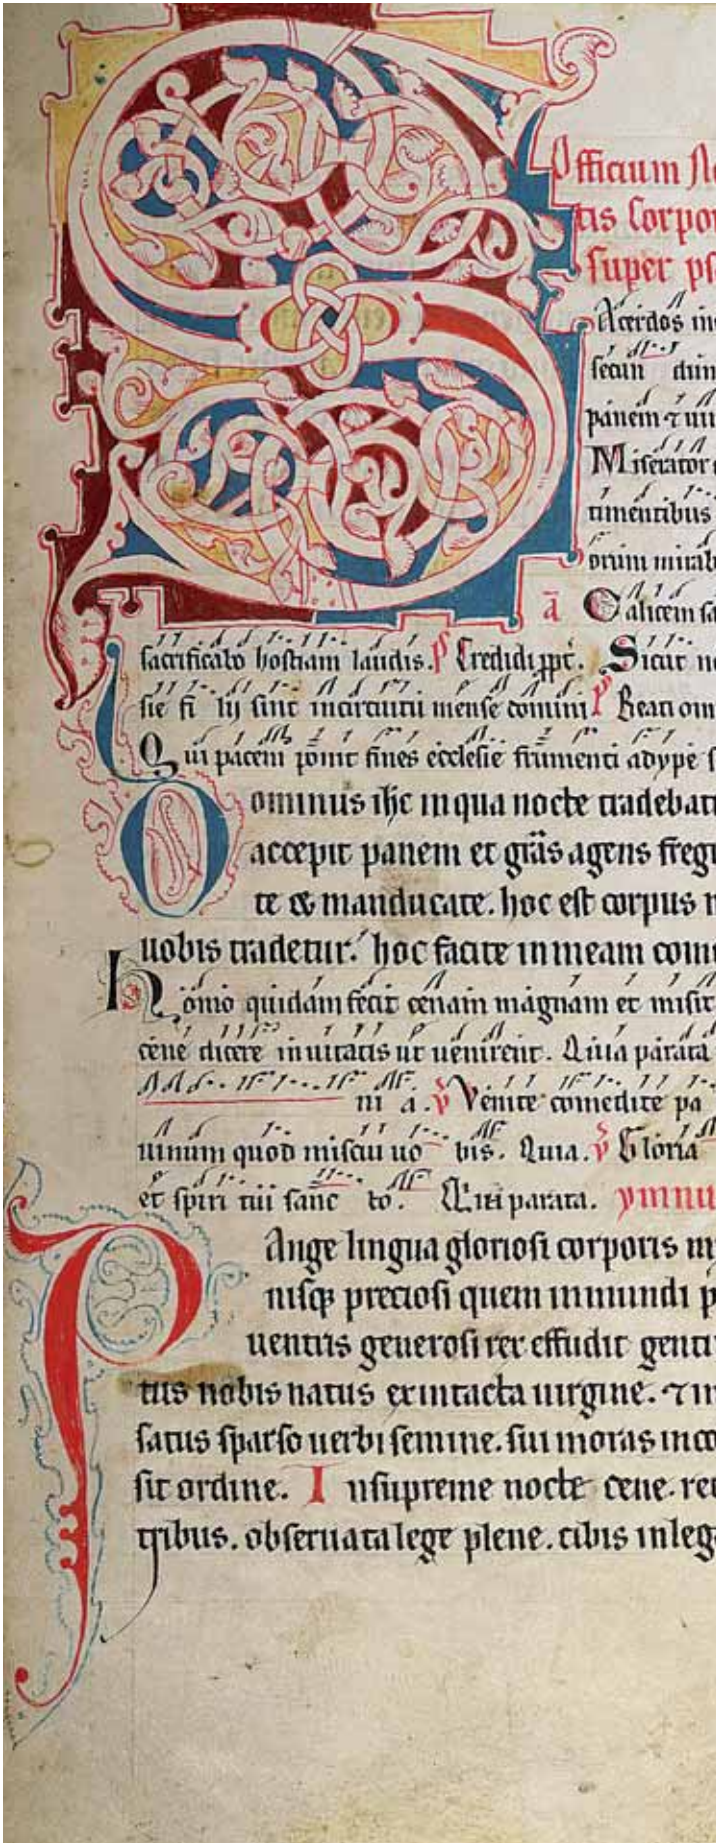 Officium
tis Corpo
super ps
Acerdos in
secun dum
panem ⁊ ui
Miserator
timentibus
orum mirab
a Calicem sa
sacrificabo hostiam laudis. ps Credidi ppt. Sicut no
sie fi lij sint incircuitu mense domini ps Beati om
Qui pacem ponit fines ecclesie frumenti adype s
Dominus ihc in qua nocte tradebat
accepit panem et gras agens fregi
te & manducate. hoc est corpus
uobis tradetur. hoc facite in meam com
Homo quidam fecit cenam magnam et misit
cene dicere inuitatis ut uenirent. Quia parata
ni a. v Venite comedite pa
uinum quod miscui uo bis. Quia. v Gloria
et spiri tui sanc to. Quia parata. ymnu
Pange lingua gloriosi corporis my
nisq; preciosi quem inmundi p
uentris generosi rex effudit genti
tus nobis natus exintacta uirgine. ⁊ in
satus sparso uerbi semine. sui moras inco
sit ordine. Insupreme nocte cene. re
tribus. obseruata lege plene. cibis inlega